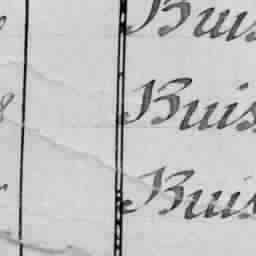 Buis
8 Buis
Buis